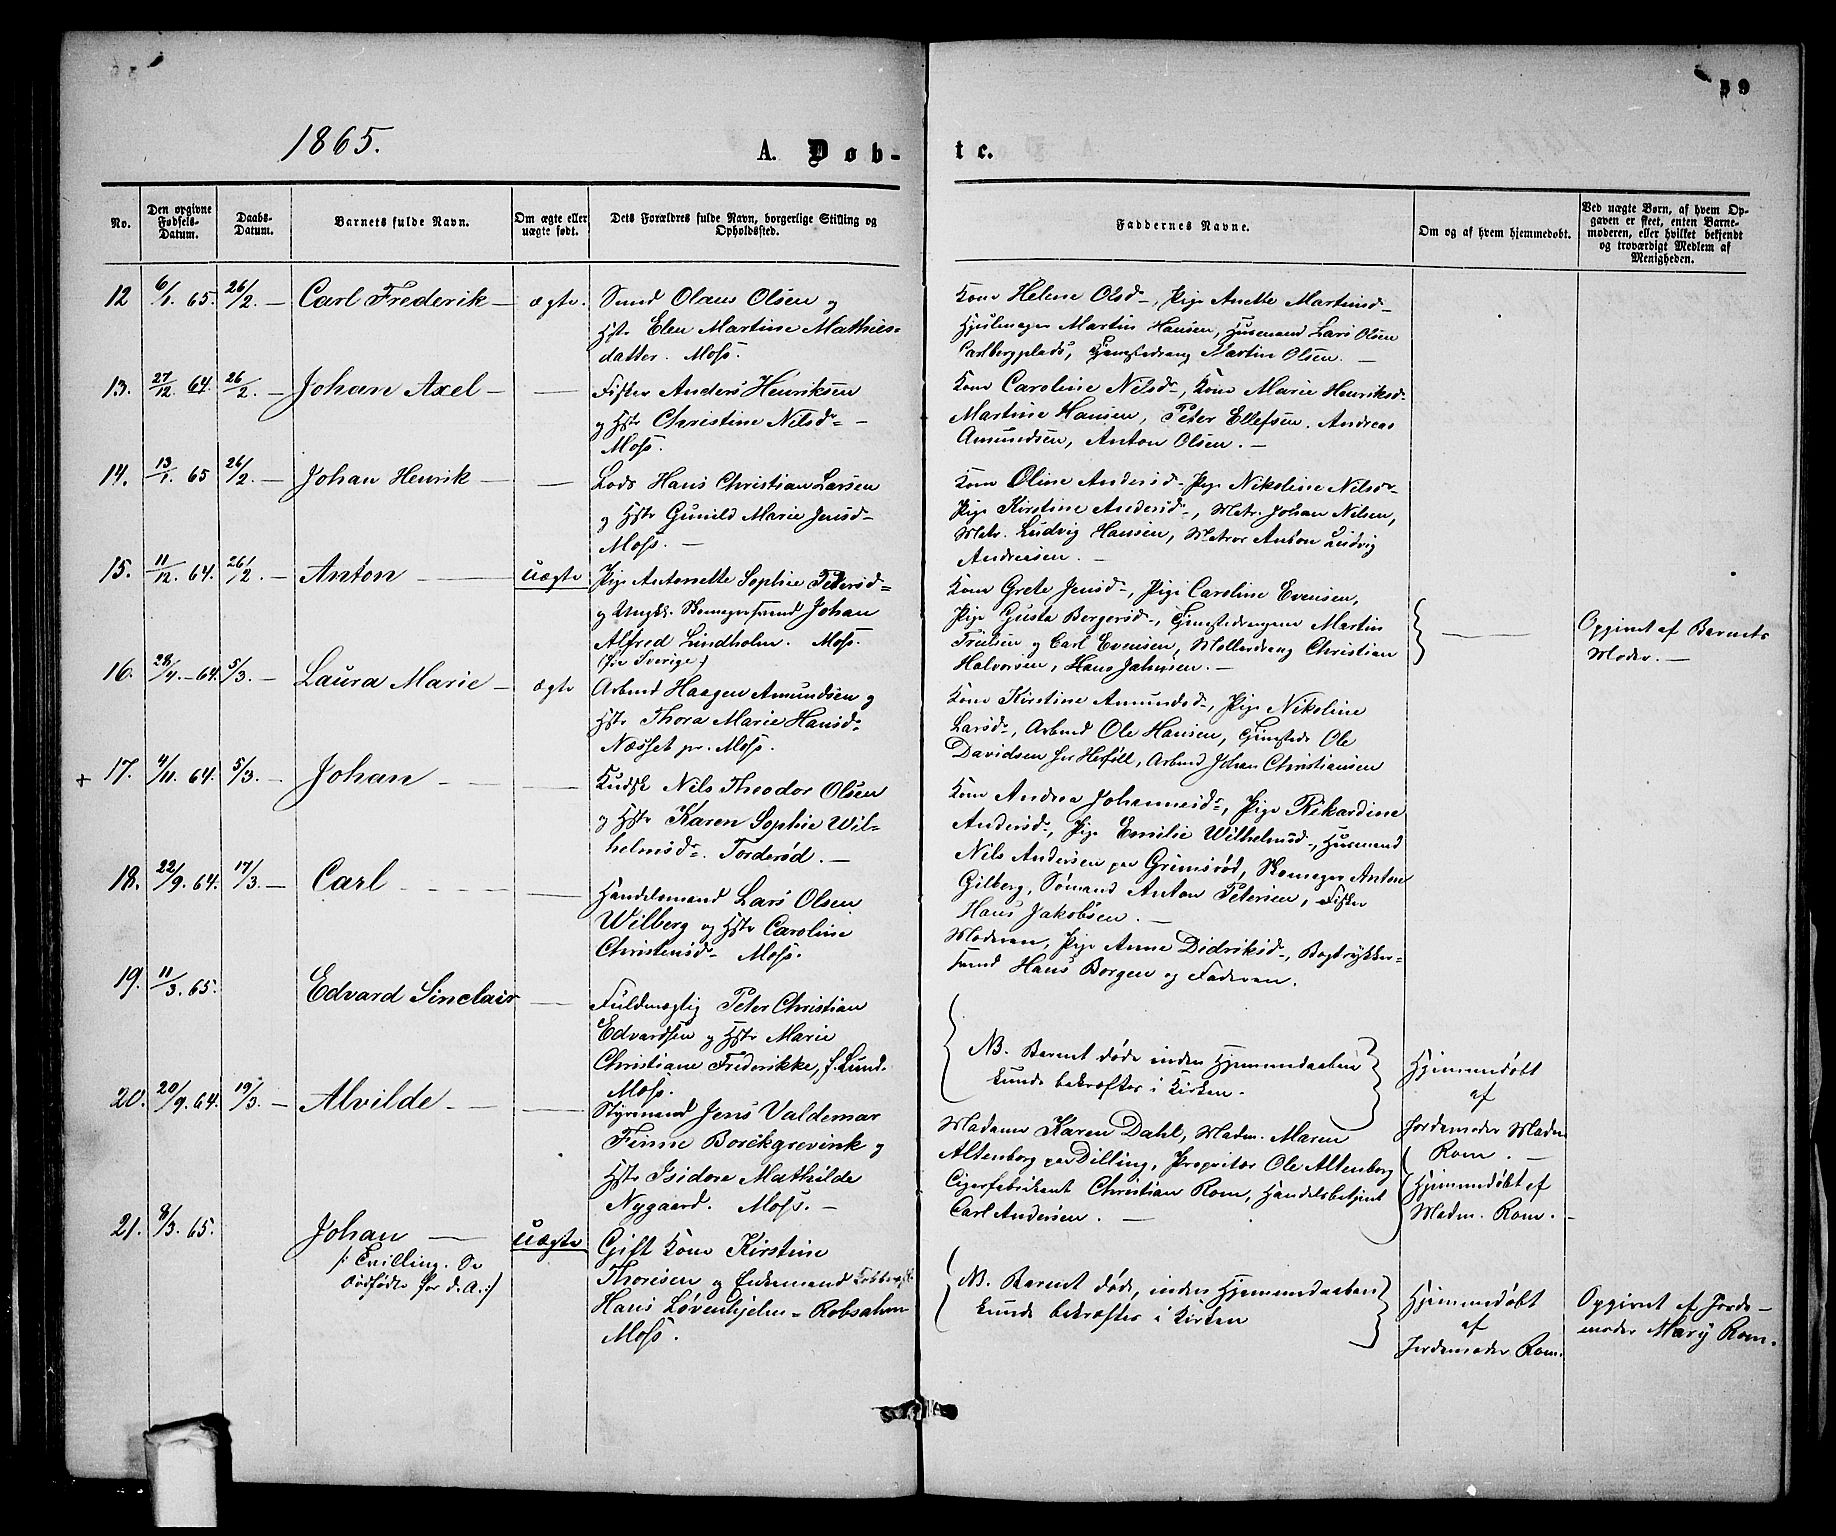 59
1865.
A. Døb-
te.
No.
Den opgivne Fødsels-Datum.
Daabs-Datum.
Barnets fulde Navn.
Om ægte eller uægte født.
Dets Forældres fulde Navn, borgerlige Stilling og Opholdssted.
Faddernes Navne.
Om og af hvem hjemmedøbt.
Ved uægte Børn, af hvem Opgaven er skeet, enten Barnemoderen, eller hvilket bekjendt og troværdigt Medlem af Menigheden.
12 6/1. 65. 26/2. – Carl Frederik – ægte. Smed Olaus Olsen og
Hstr Elen Martine Mathies-
datter. Moss.
Kone Helene Olsd-, Pige Anette Martinsd
Hjulmager Martin Hansen, Husmand Lars Olsen
Carlbergplads, Tjenestedreng Martin Olsen. –
13. 27/12. 64. 26/2. – Johan Axel – — Fisker Anders Henriksen
og Hstr Christine Nilsd= –
Moss.
Kone Caroline Nilsd-, Kone Marie Henriksd-
Martine Hansen, Peter Ellefsen. Andreas
Amundsen, Anton Olsen. –
14. 13/1. 65 26/2. – Johan Henrik – — Lods Hans Christian Larsen
og Hstr Gunild Marie Jensd-
Moss. –
Kone Oline Andersd-, Pige Nikoline Nilsd-
Pige Kirstine Andersd-, Matr. Johan Nilsen,
Matr. Ludvig Hansen, Matros Anton Ludvig
Andreasen. –
15. 11/12. 64. 26/2. – Anton — uægte Pige Antonette Sophie Petersd=
og Ungk. Skomagersvend Johan
Alfred Lindholm. Moss.
(for Sverige)
Kone Grete Jensd-, Pige Caroline Evensen,
Pige Gusta Bergersd-, Tjenestedrengene Martin
Truelsen og Carl Evensen, Møllerdreng Christian
Halvorsen, Hans Jahnsen. –
Opgivet af Barnets
Moder. –
16. 28/4. – 64. 5/3. – Laura Marie – ægte Arbmd Haagen Amundsen og
Hstr Thora Marie Hansd-
Næsset pr. Moss.
Kone Kirstine Amundsd-, Pige Nikoline
Larsd-, Arbmd Ole Hansen, Tjenestedr Ole
Davidsen fra Herføll, Arbmd Johan Christiansen
+ 17. 4/11. 64. 5/3. – Johan — Kudsk Nils Theodor Olsen
og Hstr Karen Sophie Wil-
helmsd-. Torderød. –
Kone Andrea Johannesd-, Pige Rikardine
Andersd-, Pige Emilie Wilhelmsd-, Husmand
Nils Andersen paa Grimsrød, Skomager Anton
Gilberg, Sømand Anton Petersen, Fisker
Hans Jakobsen. –
18. 22/9. 64. 17/3. – Carl — Handelsmand Lars Olsen
Wilberg og Hstr Caroline
Christensd- Moss.
Moderen, Pige Anne Didriksd-, Bogtrykker-
svend Hans Borgen og Faderen.
19. 11/3. 65. Edvard Sinclair — Fuldmægtig Peter Christian
Edvardsen og Hstr Marie
Christiane Frederikke, f. Lund.
Moss.
NB. Barnet døde inden Hjemmedaaben
kunde bekræftes i Kirken.
Hjemmedøbt
af
Jordemoder Madm
Rom. –
20. 20/9. 64. 19/3. – Alvilde — Styrmand Jens Valdemar
Finne Borckgrevink og
Hstr Isidore Mathilde
Nygaard. Moss. –
Madame Karen Dahl, Madm. Maren
Altenborg paa Dilling, Proprietær Ole Altenborg
Cigarfabrikant Christian Rom, Handelsbetjent
Carl Andersen. –
Hjemmedøbt af
Madm. Rom. –
21. 8/3. 65. Johan — uægte Gift Kone Kirstine
/: Tvilling. Se
Dødfødte for d. A. :/
Thoresen og Enkemand
Hans Løvenhjelm - Robsahm
Moss.
NB. Barnet døde, inden Hjemmedaaben
kunde bekræftes i Kirken
Hjemmedøbt
af
Jordemoder Rom.
Opgivet af Jorde-
moder Mary Rom.